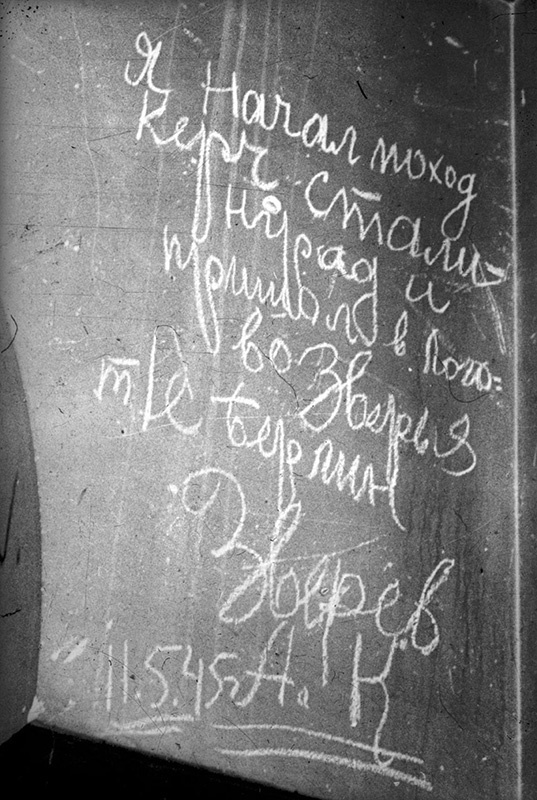 Я Начал поход
Керч Стали-
нград и
пришол в лого=
во Зверья
Берлин
Зверев
11.5.45г А. К